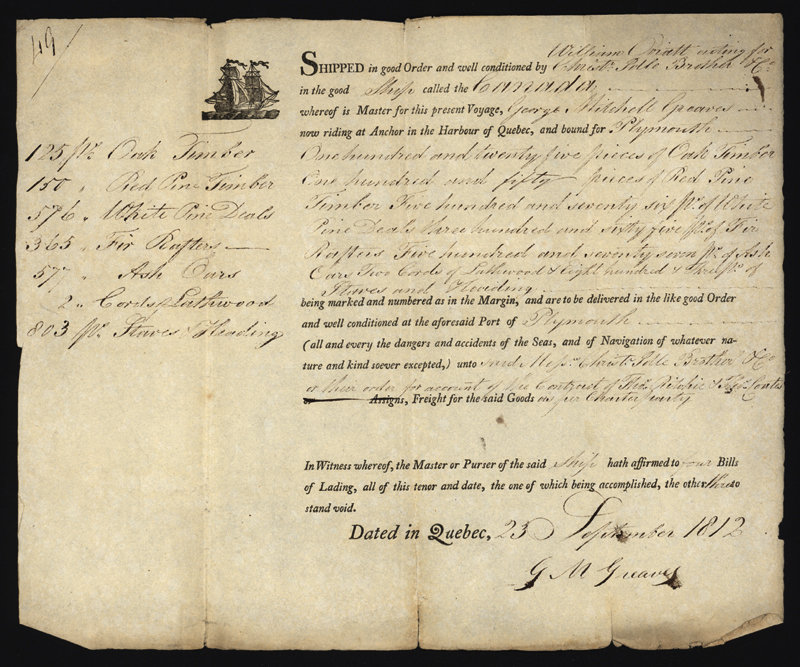 49/
William Oviatt acting for
SHIPPED in good Order and well conditioned by Christr. Idle Brother & Co
in the good Ship called the Cannada
whereof is Master for this present Voyage, George Mitchell Greaves
now riding at Anchor in the Harbour of Quebec, and bound for Plymouth
125 ps. Oak Timber
150 " Red Pine Timber
576 " White Pine Deals
365 " Fir Rafters
577 " Ash Oars
2 " Cords Lathwood
803 ps. Staves & Heading
One hundred and twenty five pieces of Oak Timber
One hundred and fifty pieces of Red Pine
Timber Five hundred and seventy six ps. of White
Pine Deals three hundred and sixty five ps. of Fir
Rafters Five hundred and seventy seven ps. of Ash
Oars Two Cords of Lathwood & Eight hundred & three ps. of
Staves and Heading
being marked and numbered as in the Margin, and are to be delivered in the like good Order
and well conditioned at the aforesaid Port of Plymouth
(all and every the dangers and accidents of the Seas, and of Navigation of whatever na-
ture and kind soever excepted,) unto said Messrs. Christr. Idle Brother & Co
or their order for account of the Contract of Ritchie &
or Assigns, Freight for the said Goods as per Charter party
In Witness whereof, the Master or Purser of the said Ship hath affirmed to four Bills
of Lading, all of this tenor and date, the one of which being accomplished, the other three to
stand void.
Dated in Quebec, 23 September 1812
G M Greaves